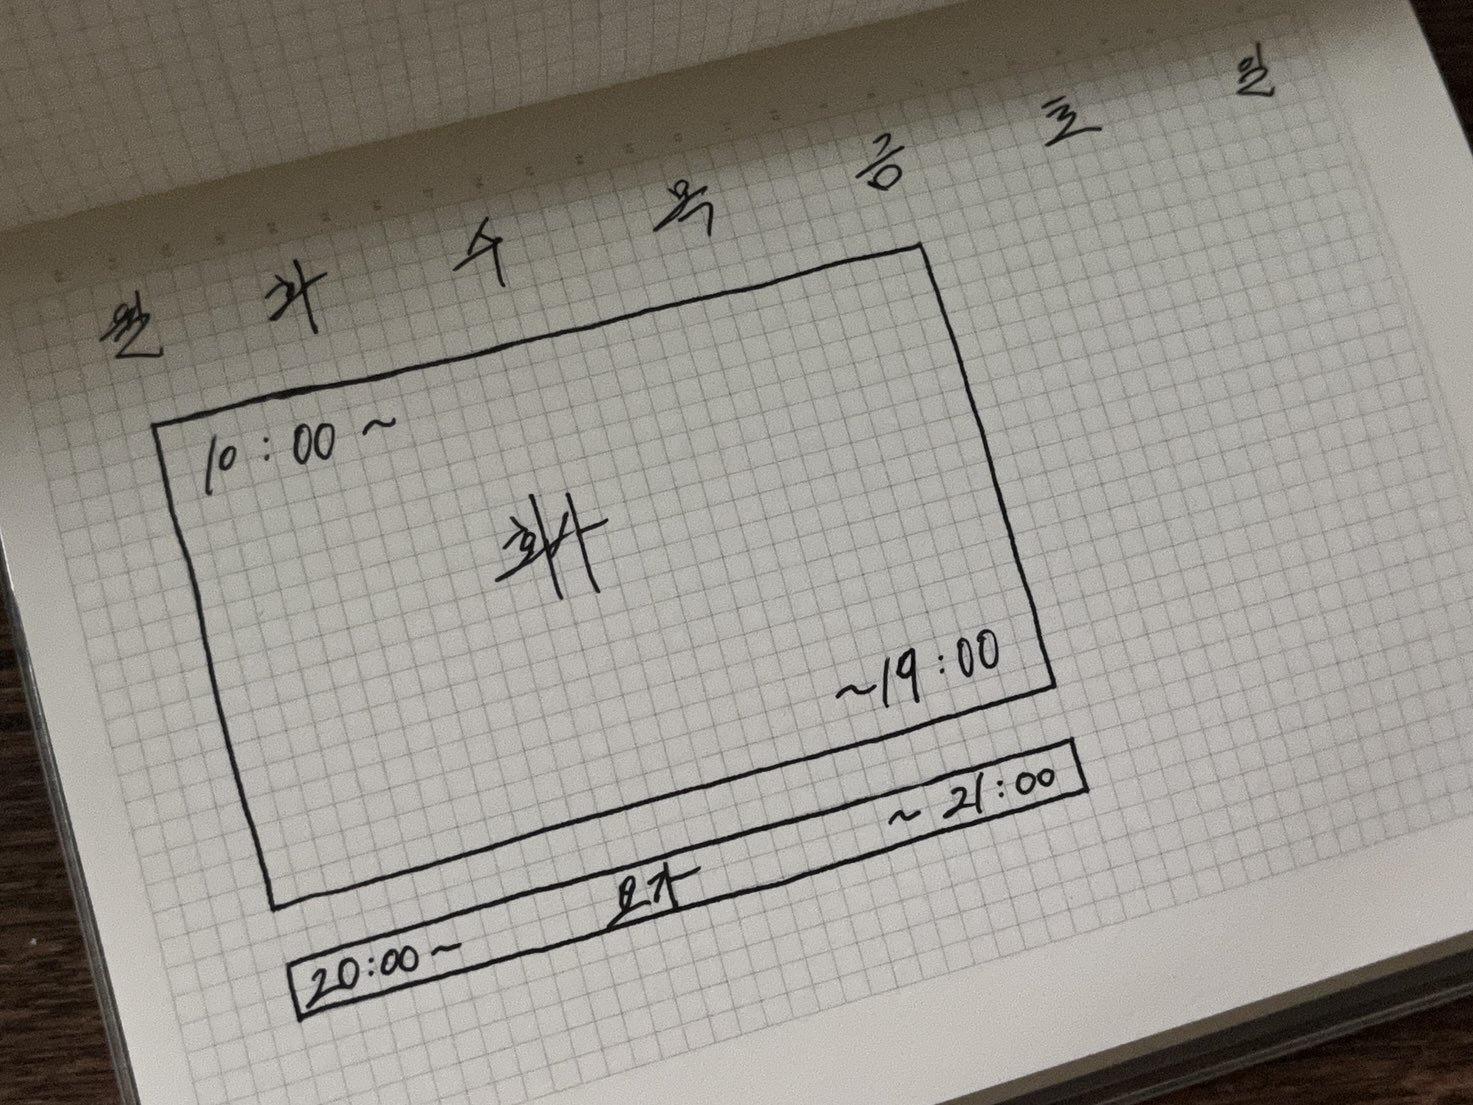 월 화 수 목 금 토 일
10:00~
회사
~19:00
20:00~ 요가 ~21:00